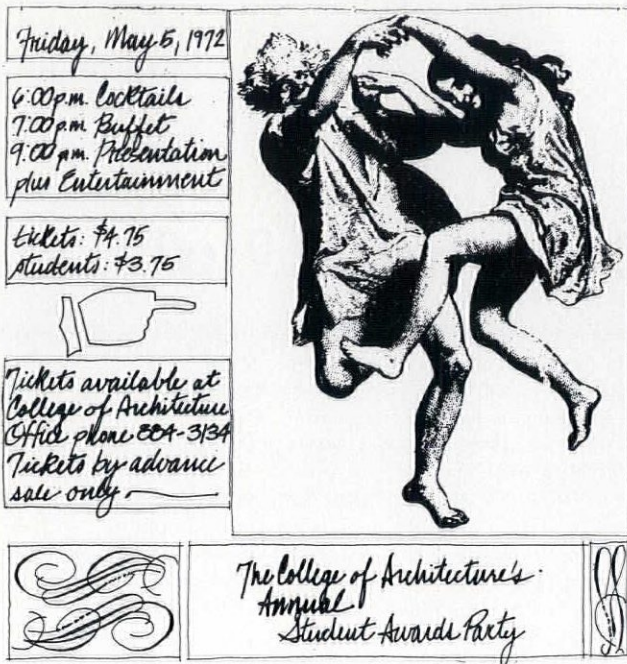 Friday, May 5, 1972
6:00 p.m. Cocktails
7:00 p.m. Buffet
9:00 p.m. Presentation
plus Entertainment
tickets: $4.75
students: $3.75
Tickets available at
College of Architecture
Office phone 884-3134
Tickets by advance
sale only
The College of Architecture's
Annual
Student Awards Party